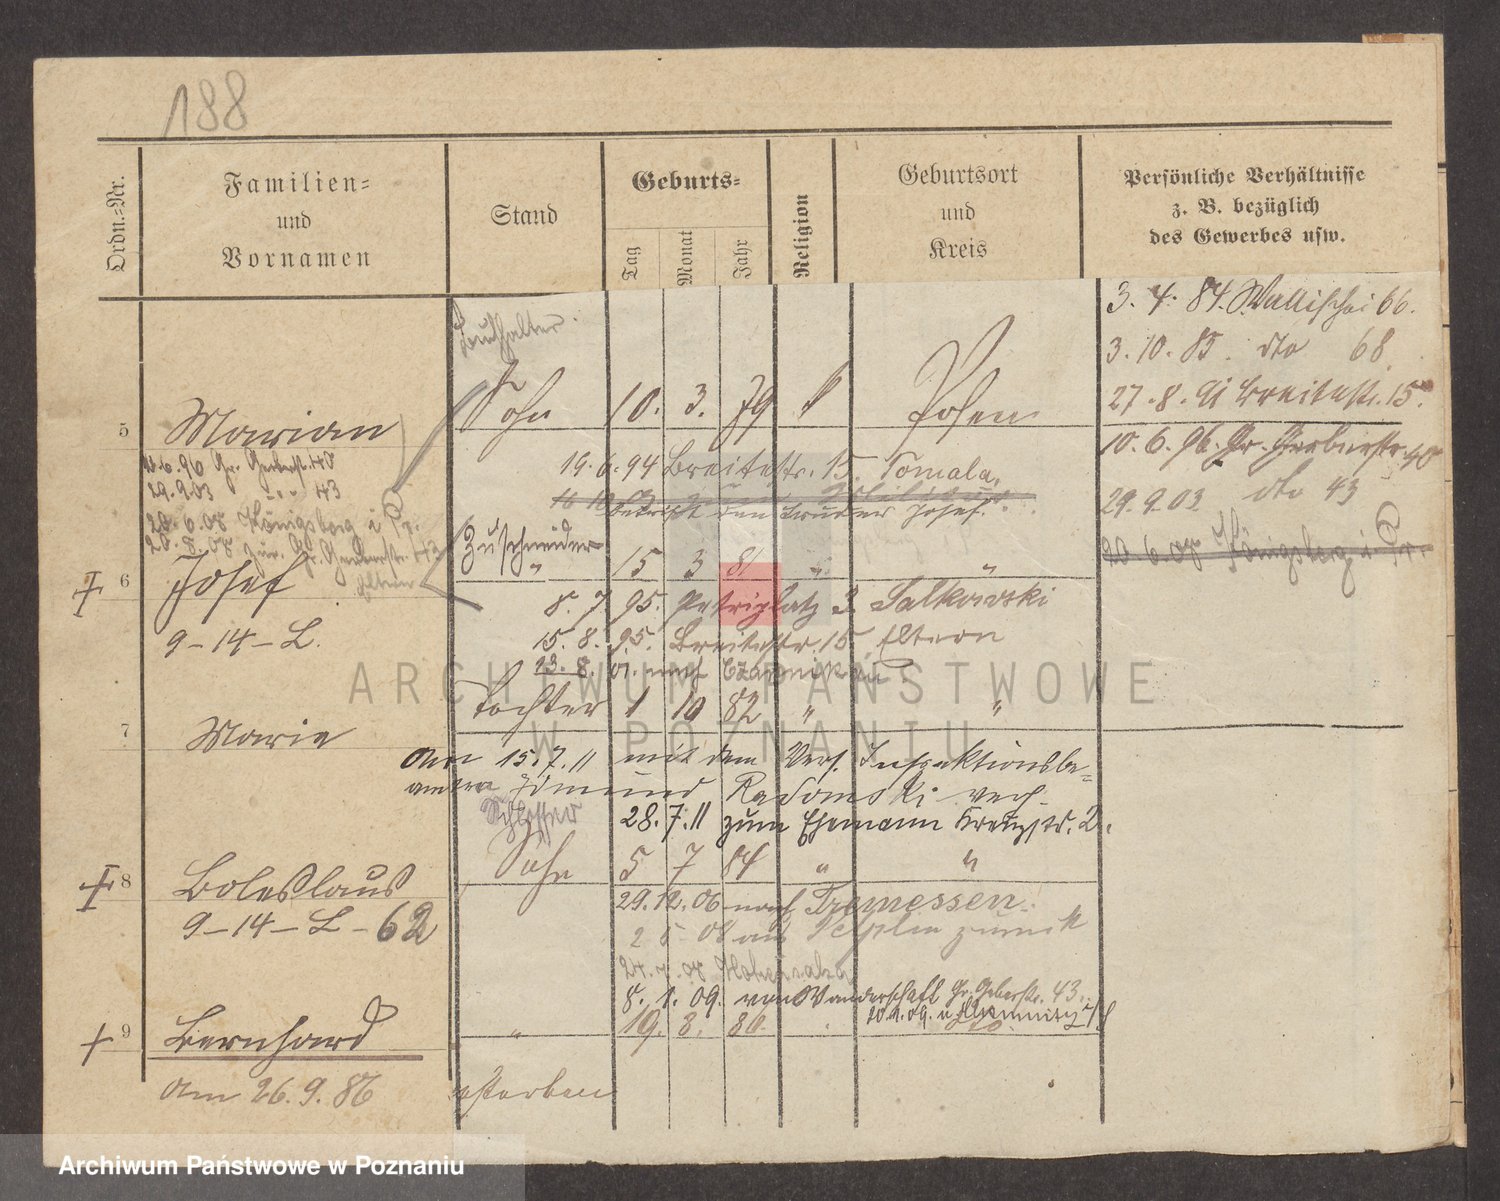 188
Ordn.=Nr.
Familien=
und
Vornamen
Stand
Geburts=
Tag
Monat
Jahr
Religion
Geburtsort
und
Kreis
Persönliche Verhältnisse
z. B. bezüglich
des Gewerbes usw.
3. 4. 84. Wallischei 66.
3. 10. 85. dto 68.
27. 8. 91 Breitestr. 15.
10. 6. 96. Gr. Gerberstr. 40
29. 9. 03. dto 43
20. 6. 08 Königsberg i Pr.
Buchhalter.
5 Marian Sohn 10. 3. 79 Posen
10.6.96 Gr. Gerberstr. 40
29.9.03 " " 43
20.6.08 Königsberg i Pr.
zur. Gr. Gerberstr. 43
Eltern
19. 6. 94 Breitestr. 15. Tomala.
betrifft den Bruder Josef.
Zuschneider
6 Josef " 15 3 81 " "
9-14-L.
8. 7. 95. Petriplatz 3. Salkowski
15. 8. 95. Breitestr. 15 Eltern
13. 8. 01. nach Czarnikau
7 Marie Tochter 1 10 82 " "
Am 15.7.11 mit dem Vers. Inspektionsbe=
amten Edmund Radomski verh.
28.7.11 zum Ehemann Kreuzstr. 2.
Schlosser
8 Boleslaus Sohn 5 7 84 " "
9-14-L-62
29.12.06 nach Tremessen.
2 5 08 aus Pelplin zurück
8. 1. 09. von Wanderschaft Gr. Gerberstr. 43.
9 Bernhard " 19. 8. 86. dto
am 26. 9. 86 gestorben
ARCHIWUM PAŃSTWOWE
W POZNANIU
Archiwum Państwowe w Poznaniu